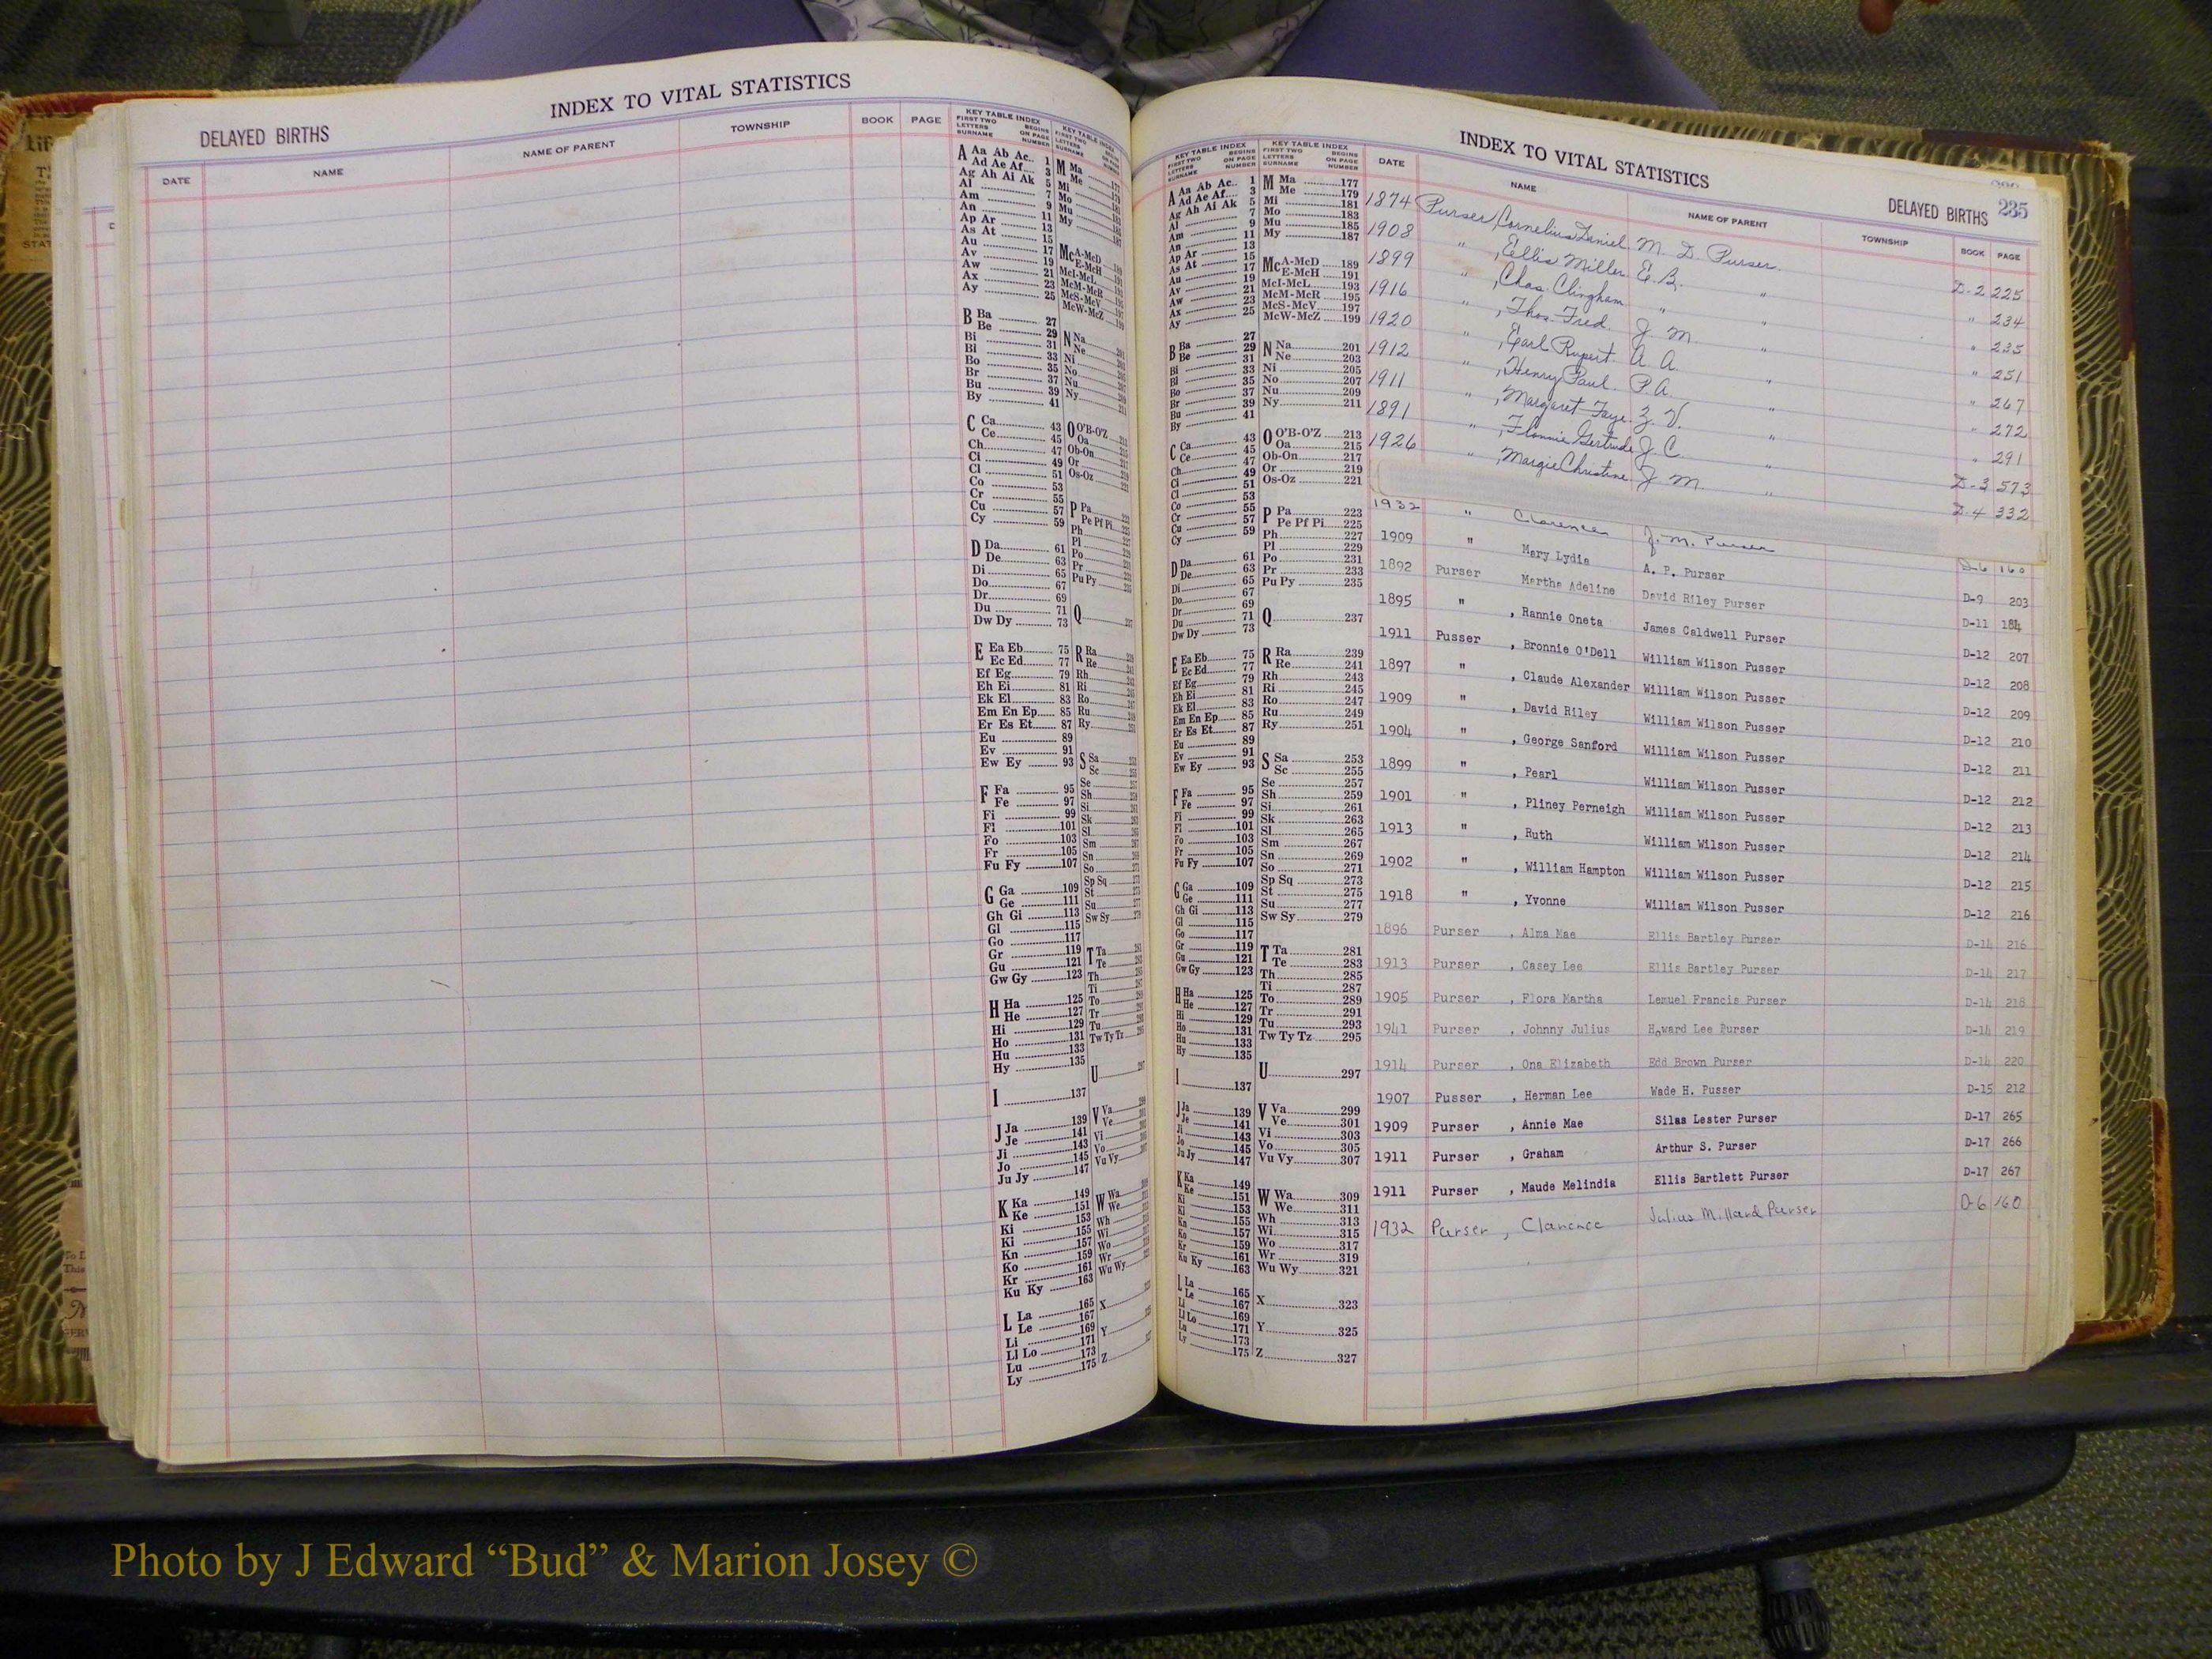 INDEX TO VITAL STATISTICS
DELAYED BIRTHS
DATE NAME NAME OF PARENT TOWNSHIP BOOK PAGE
KEY TABLE INDEX
FIRST TWO LETTERS SURNAME BEGINS ON PAGE NUMBER
A Aa Ab Ac.. 1
Ad Ae Af.... 3
Ag Ah Ai Ak 5
Al 7
Am 9
An 11
Ap Ar 13
As At 15
Au 17
Av 19
Aw 21
Ax 23
Ay 25
B Ba 27
Be 29
Bi 31
Bl 33
Bo 35
Br 37
Bu 39
By 41
C Ca 43
Ce 45
Ch 47
Ci 49
Cl 51
Co 53
Cr 55
Cu 57
Cy 59
D Da 61
De 63
Di 65
Do 67
Dr 69
Du 71
Dw Dy 73
E Ea Eb 75
Ec Ed 77
Ef Eg 79
Eh Ei 81
Ek El 83
Em En Ep 85
Er Es Et 87
Eu 89
Ev 91
Ew Ey 93
F Fa 95
Fe 97
Fi 99
Fl 101
Fo 103
Fr 105
Fu Fy 107
G Ga 109
Ge 111
Gh Gi 113
Gl 115
Go 117
Gr 119
Gu 121
Gw Gy 123
H Ha 125
He 127
Hi 129
Ho 131
Hu 133
Hy 135
I 137
J Ja 139
Je 141
Ji 143
Jo 145
Ju Jy 147
K Ka 149
Ke 151
Ki 153
Ki 155
Kn 157
Ko 159
Kr 161
Ku Ky 163
L La 165
Le 167
Li 169
Ll Lo 171
Lu 173
Ly 175
INDEX TO VITAL STATISTICS
DELAYED BIRTHS 235
KEY TABLE INDEX
FIRST TWO LETTERS SURNAME BEGINS ON PAGE NUMBER
M Ma 177
Me 179
Mi 181
Mo 183
Mu 185
My 187
Mc A-McD 189
E-McH 191
McI-McL 193
McM-McR 195
McS-McV 197
McW-McZ 199
N Na 201
Ne 203
Ni 205
No 207
Nu 209
Ny 211
O O'B-O'Z 213
Oa 215
Ob-On 217
Or 219
Os-Oz 221
P Pa 223
Pe Pf Pi 225
Ph 227
Pl 229
Po 231
Pr 233
Pu Py 235
Q 237
R Ra 239
Re 241
Rh 243
Ri 245
Ro 247
Ru 249
Ry 251
S Sa 253
Sc 255
Se 257
Sh 259
Si 261
Sk 263
Sl 265
Sm 267
Sn 269
So 271
Sp Sq 273
St 275
Su 277
Sw Sy 279
T Ta 281
Te 283
Th 285
Ti 287
To 289
Tr 291
Tu 293
Tw Ty Tz 295
U 297
V Va 299
Ve 301
Vi 303
Vo 305
Vu Vy 307
W Wa 309
We 311
Wh 313
Wi 315
Wo 317
Wr 319
Wu Wy 321
X 323
Y 325
Z 327
DATE NAME NAME OF PARENT TOWNSHIP BOOK PAGE
1874 Purser, Cornelius Daniel M. D. Purser D-2 225
1908 " , Ellis Miller E. B. " " 234
1899 " , Chas. Clingham " " " 235
1916 " , Thos. Fred. J. M. " " 251
1920 " , Earl Rupert A. A. " 267
1912 " , Henry Paul P. A. " " 272
1911 " , Margaret Faye Z. V. " " 291
1891 " , Flonnie Gertrude J. C. " D-3 573
1926 " , Margie Christine J. M. " D-4 332
1932 " Clarence J. M. Purser D-6 160
1909 " Mary Lydia A. P. Purser D-9 203
1892 Purser Martha Adeline David Riley Purser D-11 184
1895 " , Rannie Oneta James Caldwell Purser D-12 207
1911 Pusser , Bronnie O'Dell William Wilson Pusser D-12 208
1897 " , Claude Alexander William Wilson Pusser D-12 209
1909 " , David Riley William Wilson Pusser D-12 210
1904 " , George Sanford William Wilson Pusser D-12 211
1899 " , Pearl William Wilson Pusser D-12 212
1901 " , Pliney Perneigh William Wilson Pusser D-12 213
1913 " , Ruth William Wilson Pusser D-12 214
1902 " , William Hampton William Wilson Pusser D-12 215
1918 " , Yvonne William Wilson Pusser D-12 216
1896 Purser , Alma Mae Ellis Bartley Purser D-14 216
1913 Purser , Casey Lee Ellis Bartley Purser D-14 217
1905 Purser , Flora Martha Lemuel Francis Purser D-14 218
1941 Purser , Johnny Julius Howard Lee Purser D-14 219
1914 Purser , Ona Elizabeth Edd Brown Purser D-14 220
1907 Pusser , Herman Lee Wade H. Pusser D-15 212
1909 Purser , Annie Mae Silas Lester Purser D-17 265
1911 Purser , Graham Arthur S. Purser D-17 266
1911 Purser , Maude Melindia Ellis Bartlett Purser D-17 267
1932 Purser , Clarence Julius Millard Purser D-6 160
Photo by J Edward “Bud” & Marion Josey ©